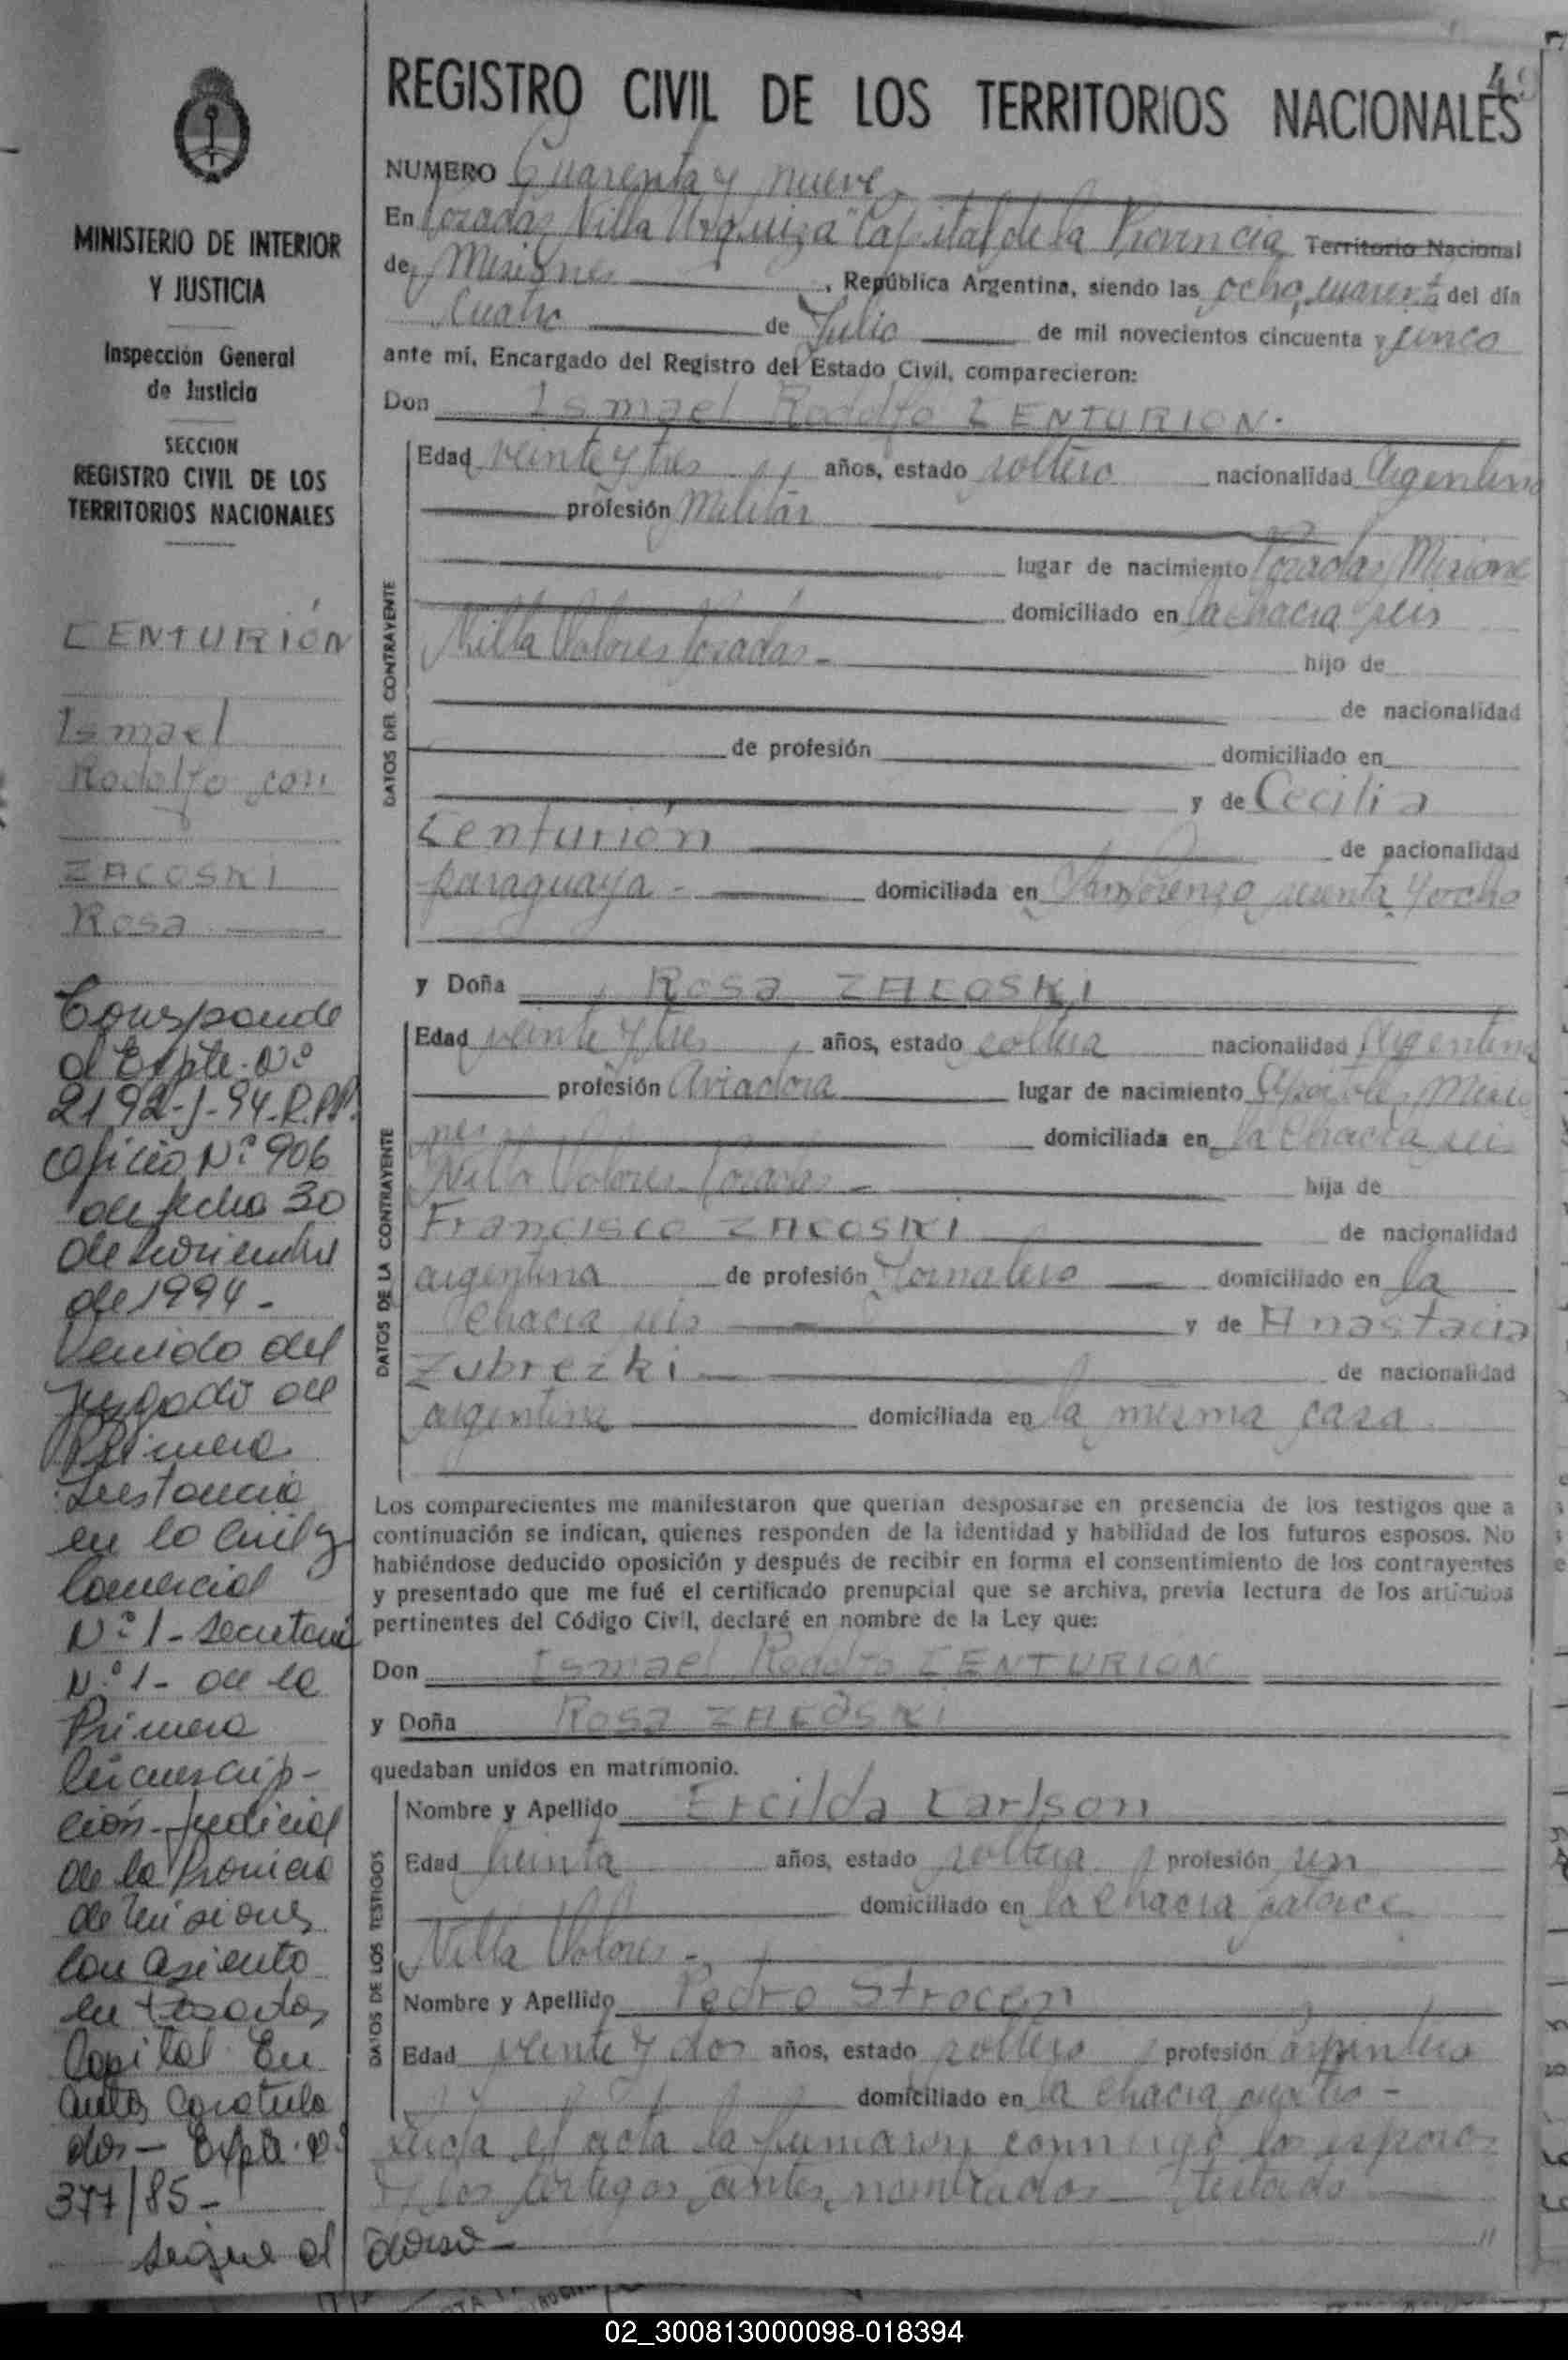 MINISTERIO DE INTERIOR
Y JUSTICIA
Inspección General
de Justicia
SECCION
REGISTRO CIVIL DE LOS
TERRITORIOS NACIONALES
CENTURIÓN
Ismael
Rodolfo con
ZACOSKI
Rosa
Corresponde
al Expte. Nº
2192-J-94-R.P.P.
oficio Nº 906
de fecha 30
de noviembre
de 1994 -
Venido del
Juzgado de
Primera
Instancia
en lo Civil y
Comercial
Nº 1 - Secretaria
Nº 1 - de la
Primera
Circunscrip-
ción Judicial
de la Provincia
de Misiones
con asiento
en Posadas
Capital. En
autos caratula
dos - Expte. Nº
377/85 -
sigue al dorso -
REGISTRO CIVIL DE LOS TERRITORIOS NACIONALES
NUMERO Cuarenta y nueve
En Posadas Villa Urquiza Capital de la Provincia Territorio Nacional
de Misiones, República Argentina, siendo las ocho, cuarenta del día
cuatro de Julio de mil novecientos cincuenta y cinco
ante mí, Encargado del Registro del Estado Civil, comparecieron:
Don Ismael Rodolfo CENTURION.
DATOS DEL CONTRAYENTE
Edad veinte y tres años, estado soltero nacionalidad Argentino
profesión Militar
lugar de nacimiento Posadas, Misione
domiciliado en la chacra seis
Villa Dolores Posadas - hijo de
de nacionalidad
de profesión domiciliado en
y de Cecilia
Centurión de nacionalidad
paraguaya - domiciliada en San Lorenzo y ocho
y Doña Rosa ZACOSKI
DATOS DE LA CONTRAYENTE
Edad veinte y tres años, estado soltera nacionalidad Argentina
profesión lugar de nacimiento Apóstoles, Misio
nes domiciliada en la chacra seis
Villa Dolores Posadas - hija de
Francisco ZACOSKI de nacionalidad
argentina de profesión Jornalero domiciliado en la
chacra seis y de Anastacia
Zubrezki de nacionalidad
argentina domiciliada en la misma casa
Los comparecientes me manifestaron que querían desposarse en presencia de los testigos que a
continuación se indican, quienes responden de la identidad y habilidad de los futuros esposos. No
habiéndose deducido oposición y después de recibir en forma el consentimiento de los contrayentes
y presentado que me fué el certificado prenupcial que se archiva, previa lectura de los artículos
pertinentes del Código Civil, declaré en nombre de la Ley que:
Don Ismael Rodolfo CENTURION
y Doña Rosa ZACOSKI
quedaban unidos en matrimonio.
DATOS DE LOS TESTIGOS
Nombre y Apellido Ercilda Carlson
Edad treinta años, estado soltera, profesión sin
domiciliado en la chacra catorce
Villa Dolores -
Nombre y Apellido Pedro Strocen
Edad veinte y dos años, estado soltero, profesión carpintero
domiciliado en la chacra cuatro -
Leída el acta la firmaron conmigo los esposos
y los testigos antes nombrados - testado
02_300813000098-018394